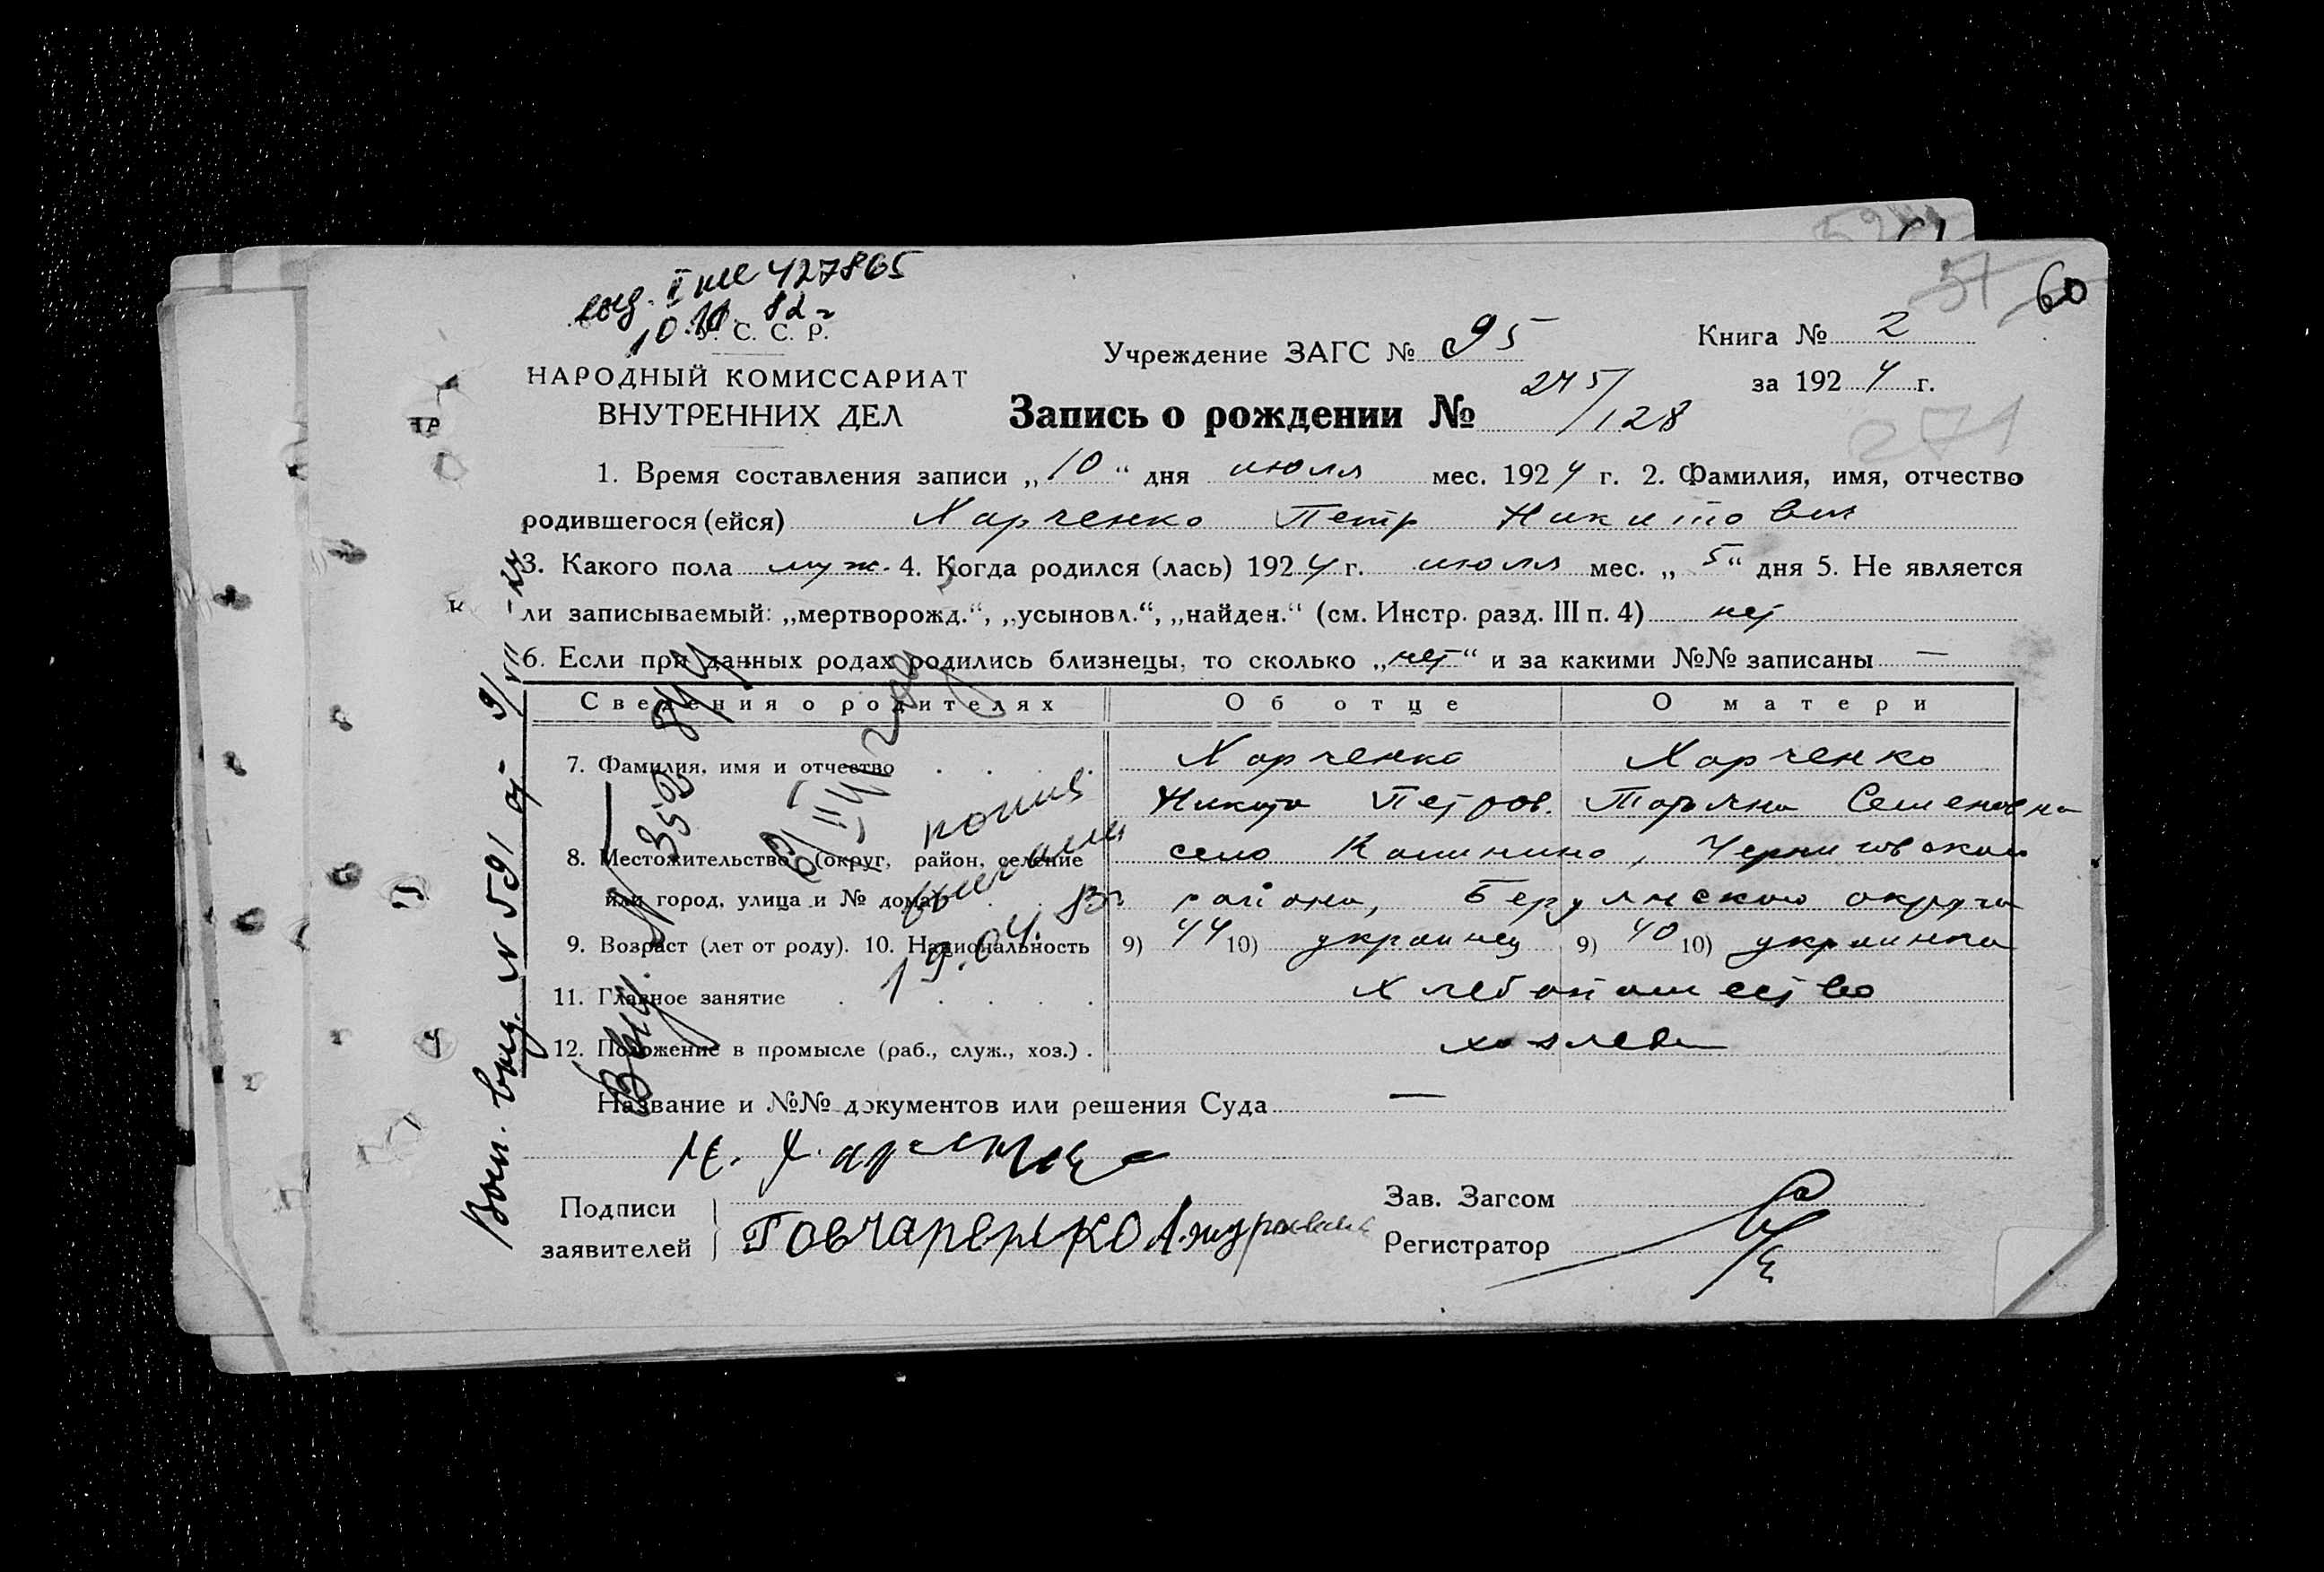 выд. II ЖС 427865
10. 82 г
У. С. С. Р.
НАРОДНЫЙ КОМИССАРИАТ
ВНУТРЕННИХ ДЕЛ
Учреждение ЗАГС № 95
Книга № 2
за 1924 г.
51 60
Запись о рождении № 245/128
271
1. Время составления записи „10“ дня июля мес. 1924 г. 2. Фамилия, имя, отчество
родившегося (ейся) Харченко Петр Никитович
3. Какого пола муж. 4. Когда родился (лась) 1924 г. июля мес. „5“ дня 5. Не является
ли записываемый: „мертворожд.“, „усыновл.“, „найден.“ (см. Инстр. разд. III п. 4) нет
6. Если при данных родах родились близнецы, то сколько „нет“ и за какими №№ записаны —
Сведения о родителях Об отце О матери
7. Фамилия, имя и отчество Харченко Харченко
Никита Петров. Татьяна Семеновна
8. Местожительство (округ, район, селение село Калинино, Черниговского
или город, улица и № дома) района, Бердянского округа
9. Возраст (лет от роду). 10. Национальность 9) 44 10) украинец 9) 40 10) украинка
11. Главное занятие хлебопашество
12. Положение в промысле (раб., служ., хоз.) хозяева
копия
высылали
19.04.83г
Выд.
выд. № 591 от 9/VII-24
Название и №№ документов или решения Суда —
Н. Харченко
Подписи
заявителей
Гончаренко
Зав. Загсом
Регистратор